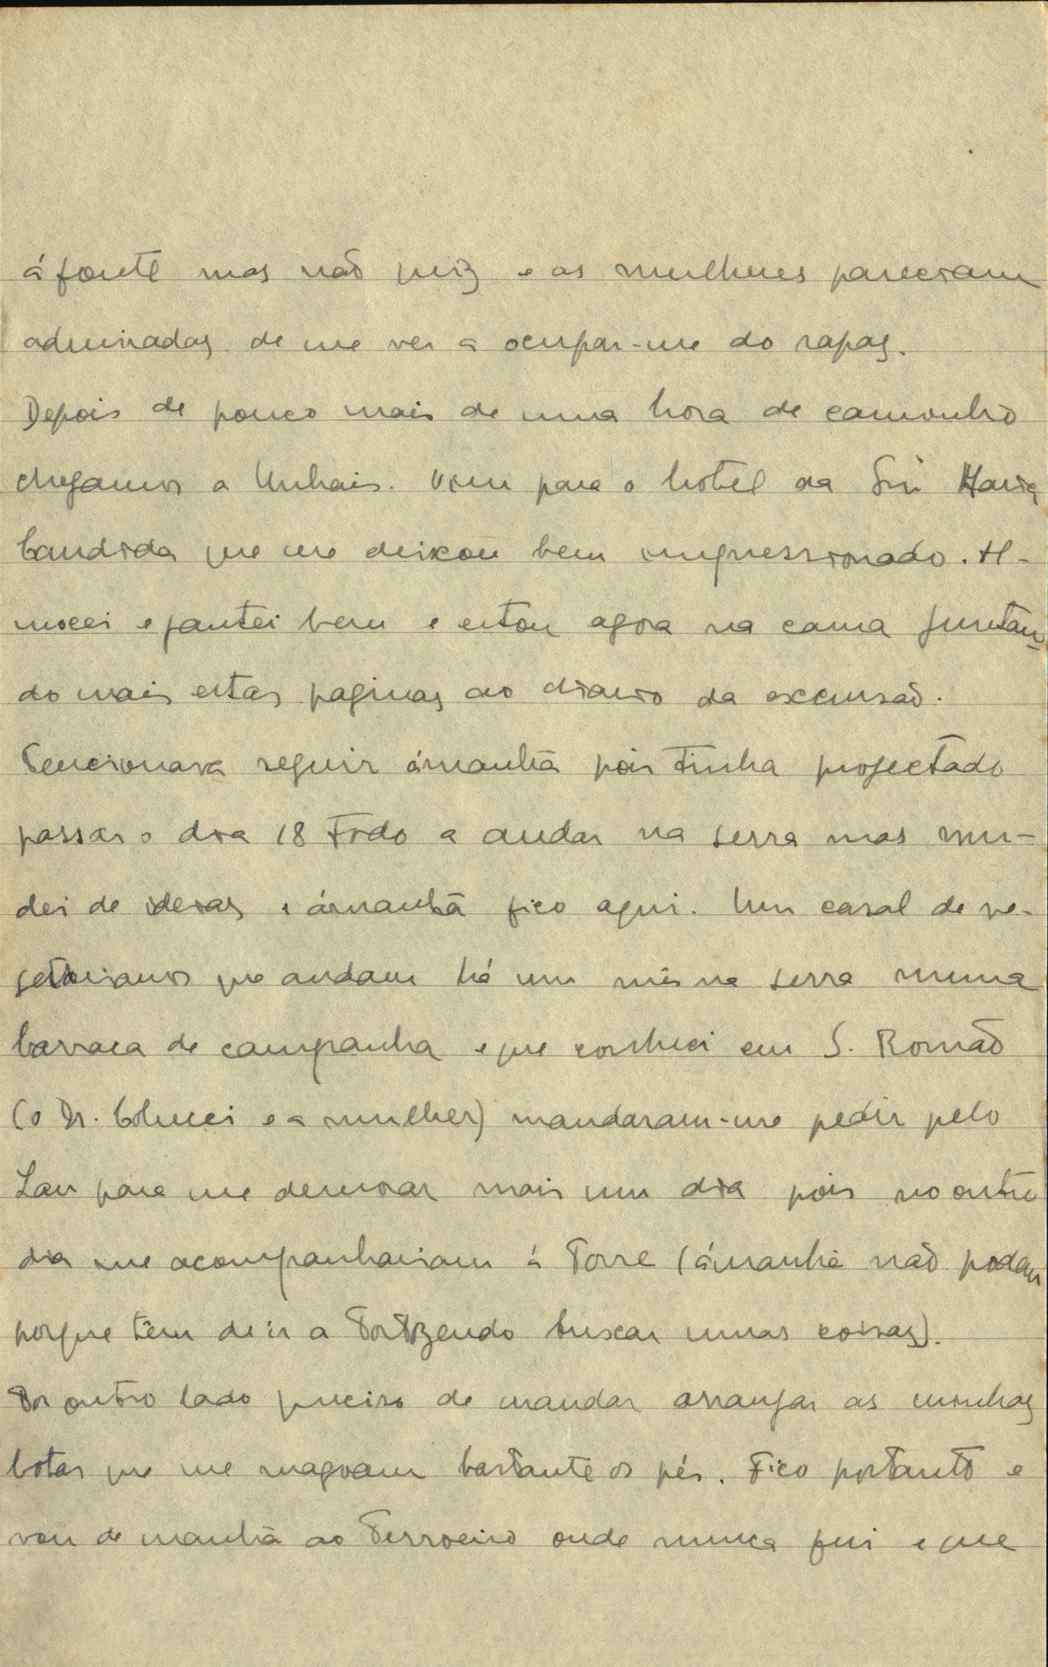 á fonte mas não quiz e as mulheres pareceram
admiradas de me ver a ocupar-me do rapaz.
Depois de pouco mais de uma hora de caminho
chegamos a Unhais. Vim para o hotel da Srª Maria
Candida que me deixou bem impressionado. Al-
mocei e jantei bem e estou agora na cama juntan-
do mais estas paginas ao diario da excursão.
Tencionava seguir ámanhã pois tinha projectado
passar o dia 18 todo a andar na serra mas mu-
dei de ideias e ámanhã fico aqui. Um casal de ve-
getarianos que andam há um mês na serra numa
barraca de campanha e que conheci em S. Romão
(o Dr. Colucci e a mulher) mandaram-me pedir pelo
Lau para me demorar mais um dia pois no outro
dia me acompanhariam á Torre (ámanhã não podem
porque têm de ir a Tortozendo buscar umas coisas).
Por outro lado preciso de mandar arranjar as minhas
botas que me magoam bastante os pés. Fico portanto e
vou de manhã ao Terroeiro onde nunca fui e que